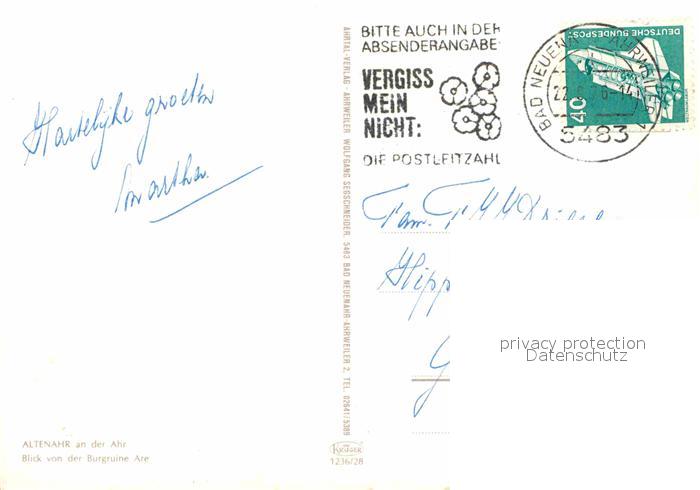 Hartelijke groeten
Martha.
ALTENAHR an der Ahr
Blick von der Burgruine Are
AHRTAL-VERLAG · AHRWEILER WOLFGANG SEGSCHNEIDER, 5483 BAD NEUENAHR-AHRWEILER 2, TEL. 02641/5389
KRÜGER
1236/28
BITTE AUCH IN DER
ABSENDERANGABE
VERGISS
MEIN
NICHT:
DIE POSTLEITZAHL
BAD NEUENAHR-AHRWEILER
5483
DEUTSCHE BUNDESPOST
40
Fam.
Hipp
privacy protection
Datenschutz